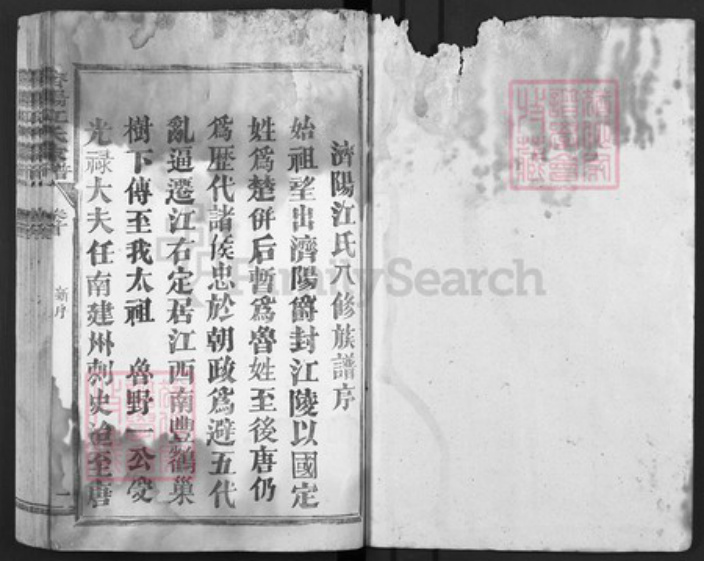 濟陽江氏八修族譜序
始祖望出濟陽爵封江陵以國定
姓爲楚併后暫爲魯姓至後唐仍
爲歷代諸侯忠於朝政爲避五代
亂逼遷江右定居江西南豐鶴巢
樹下傳至我太祖 魯野一公受
光禄大夫任南建州刺史迨至唐
濟陽江氏宗譜
卷首
新序
一
FamilySearch